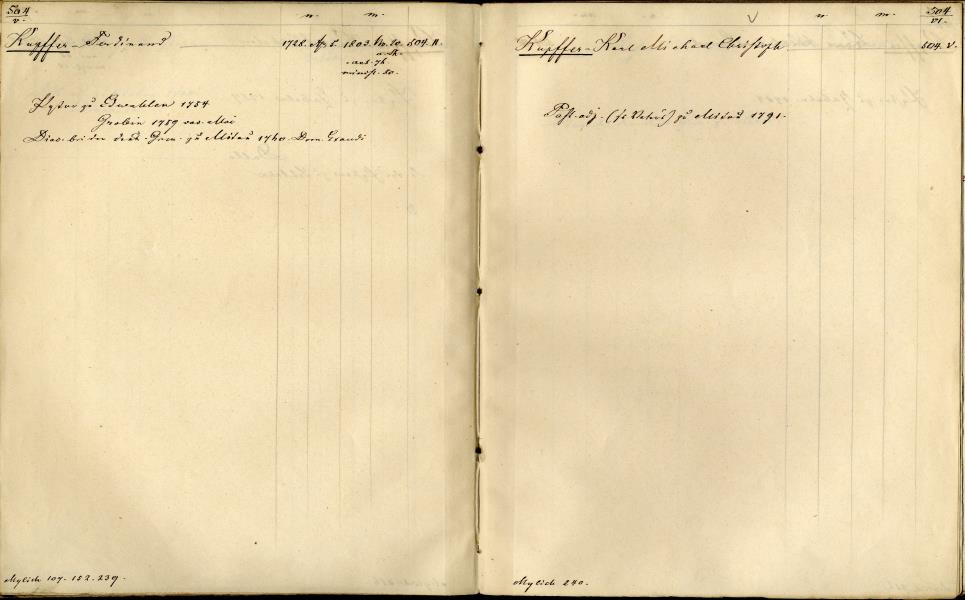 504
V.
n. m.
Kupffer – Ferdinand 1728. Apr 5. 1803. 20. 504. II.
a. St.
aet. 74.
minist. 50.
Pastor zu Zwahlen 1754
Grobin 1759 voc. Mai
Diac. bei der deut. Gem. zu Mitau 1760 Dom. Exaudi
Mylich 107. 152. 239.
504
VI.
n. m.
Kupffer – Karl Michael Christoph 504. V.
Past. adj. zu Mitau 1791.
Mylich 240.